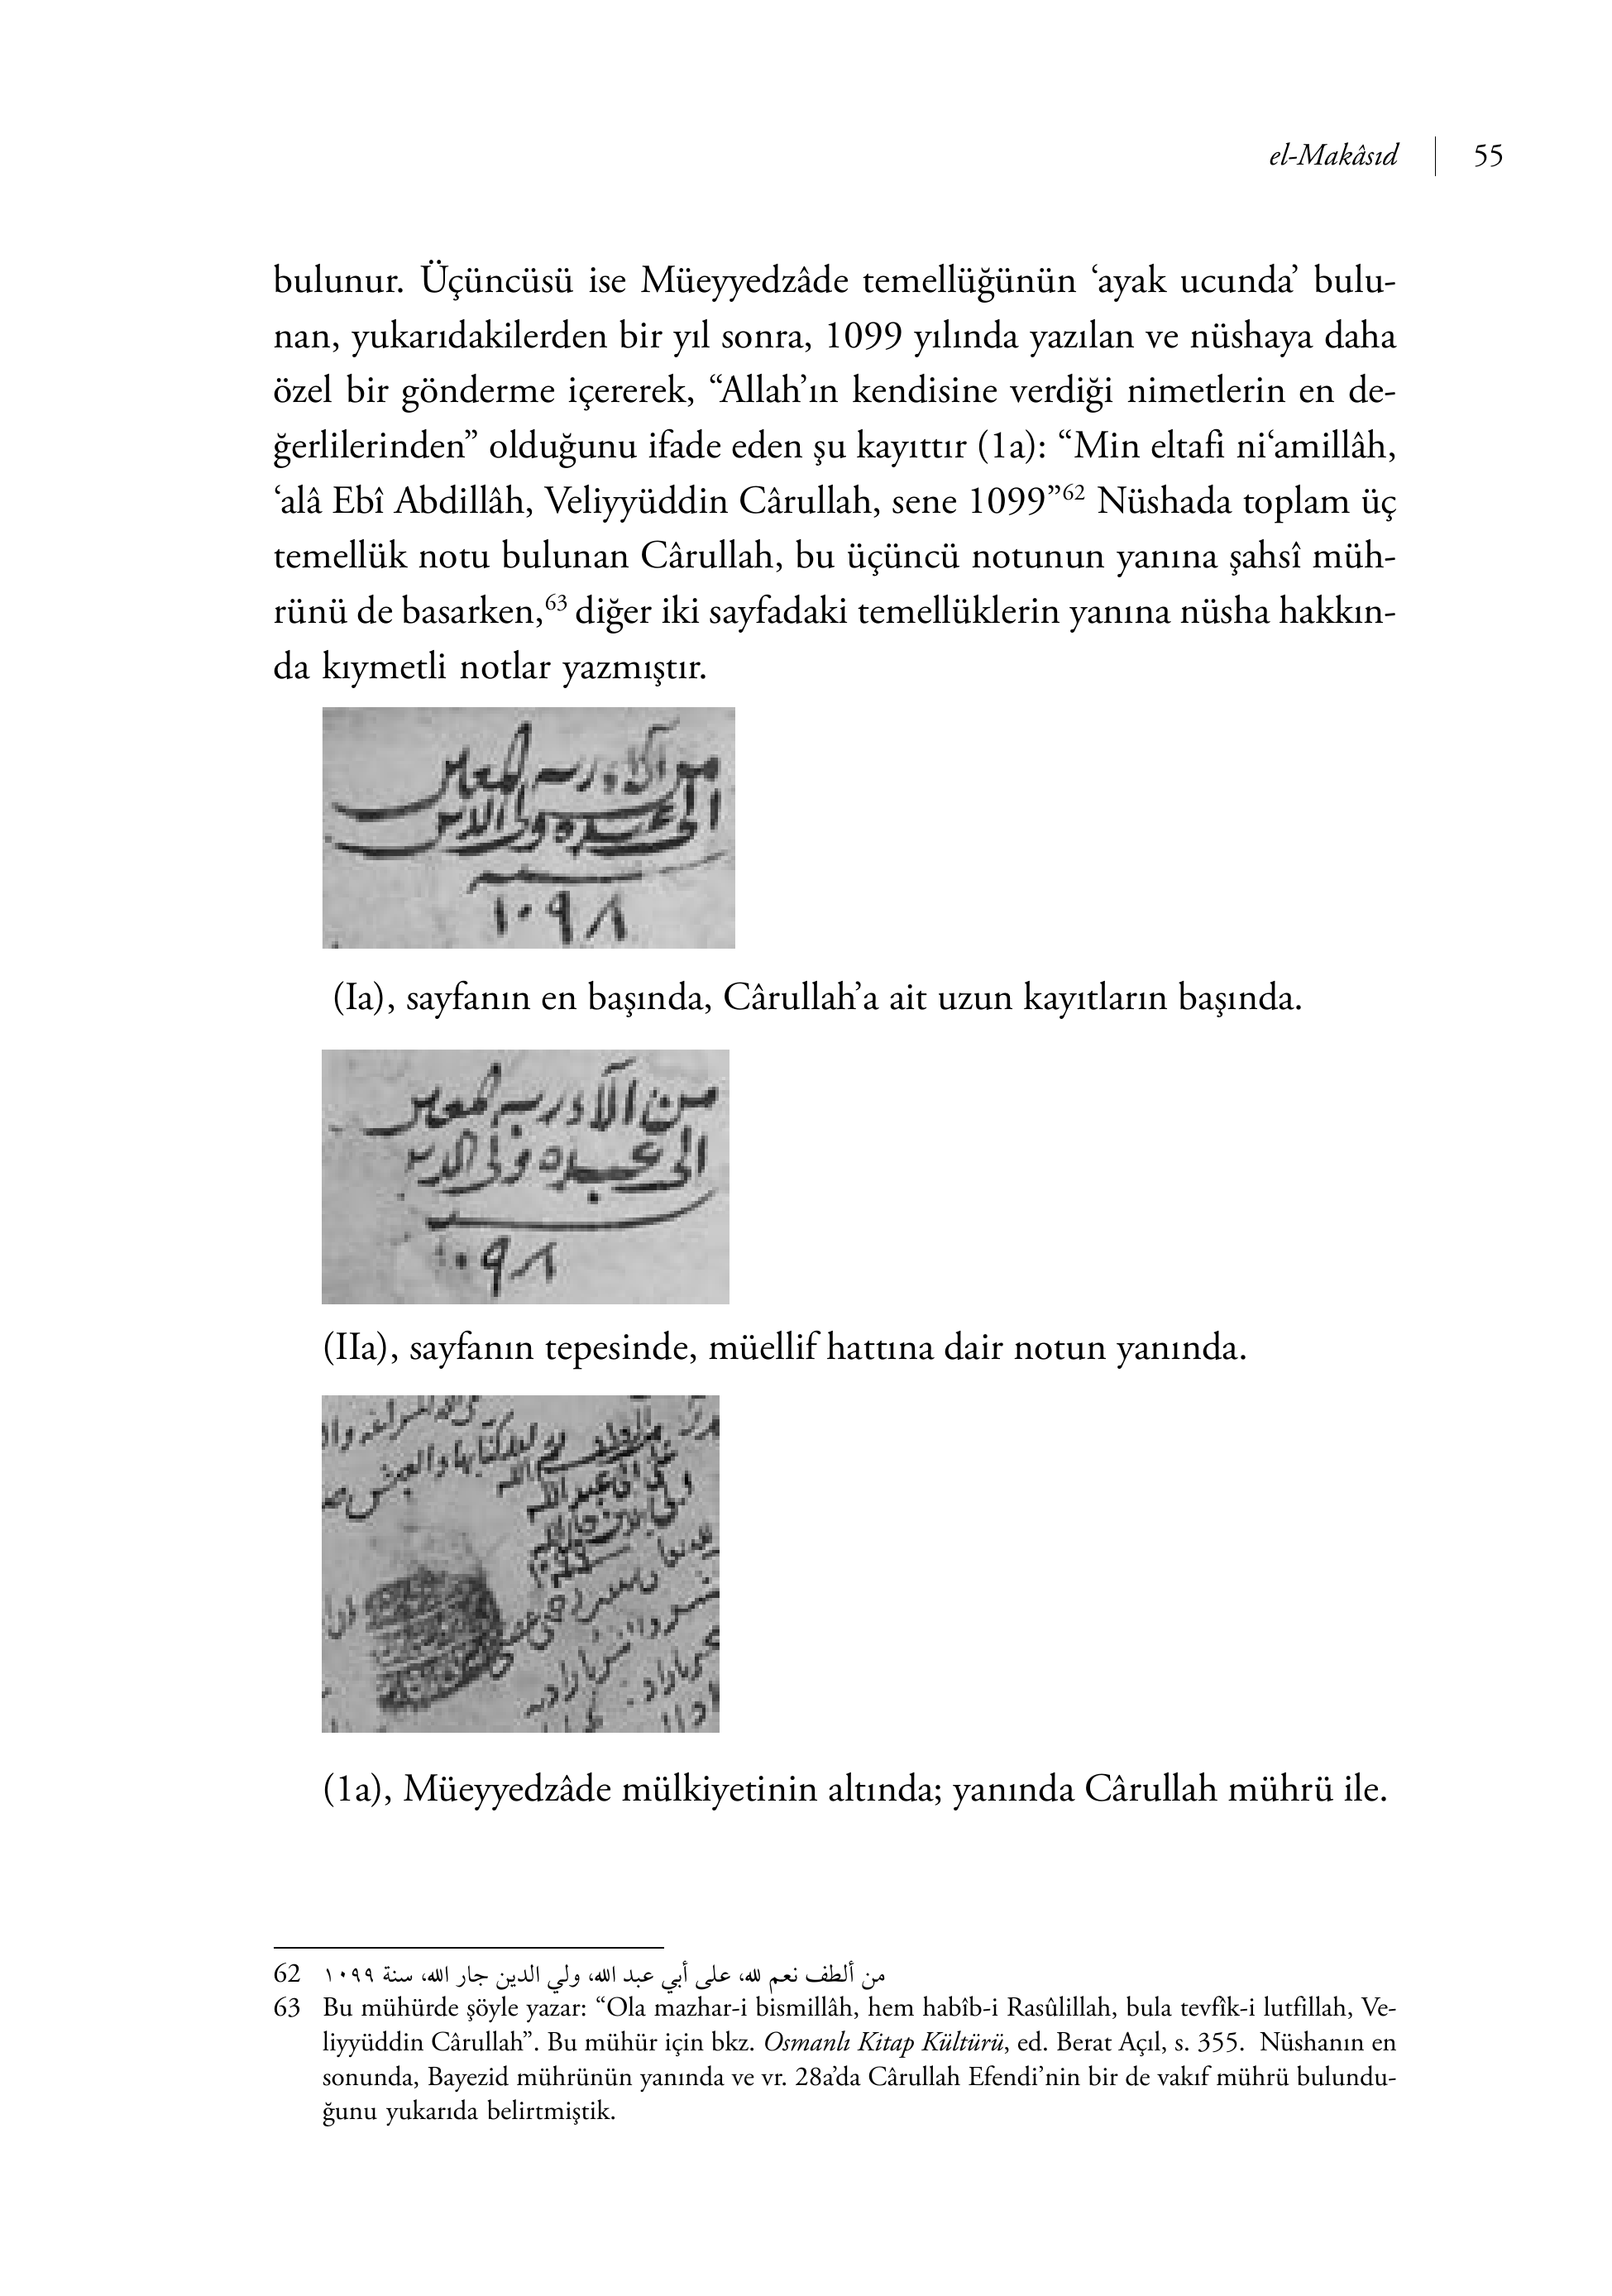 el-Makâsıd 55
bulunur. Üçüncüsü ise Müeyyedzâde temellüğünün ‘ayak ucunda’ bulu-
nan, yukarıdakilerden bir yıl sonra, 1099 yılında yazılan ve nüshaya daha
özel bir gönderme içererek, “Allah’ın kendisine verdiği nimetlerin en de-
ğerlilerinden” olduğunu ifade eden şu kayıttır (1a): “Min eltafi ni‘amillâh,
‘alâ Ebî Abdillâh, Veliyyüddin Cârullah, sene 1099”62 Nüshada toplam üç
temellük notu bulunan Cârullah, bu üçüncü notunun yanına şahsî müh-
rünü de basarken,63 diğer iki sayfadaki temellüklerin yanına nüsha hakkın-
da kıymetli notlar yazmıştır.
من آلاء ربه المعين
الى عبده ولي الدين
سنه
١٠٩٨
(Ia), sayfanın en başında, Cârullah’a ait uzun kayıtların başında.
من آلاء ربه المعين
الى عبده ولي الدين
٠٩٨
(IIa), sayfanın tepesinde, müellif hattına dair notun yanında.
على ابي عبد الله
ولي الدين جار الله
(1a), Müeyyedzâde mülkiyetinin altında; yanında Cârullah mührü ile.
62 من ألطف نعم لله، على أبي عبد الله، ولي الدين جار الله، سنة ١٠٩٩
63 Bu mühürde şöyle yazar: “Ola mazhar-i bismillâh, hem habîb-i Rasûlillah, bula tevfîk-i lutfillah, Ve-
liyyüddin Cârullah”. Bu mühür için bkz. Osmanlı Kitap Kültürü, ed. Berat Açıl, s. 355. Nüshanın en
sonunda, Bayezid mührünün yanında ve vr. 28a’da Cârullah Efendi’nin bir de vakıf mührü bulundu-
ğunu yukarıda belirtmiştik.